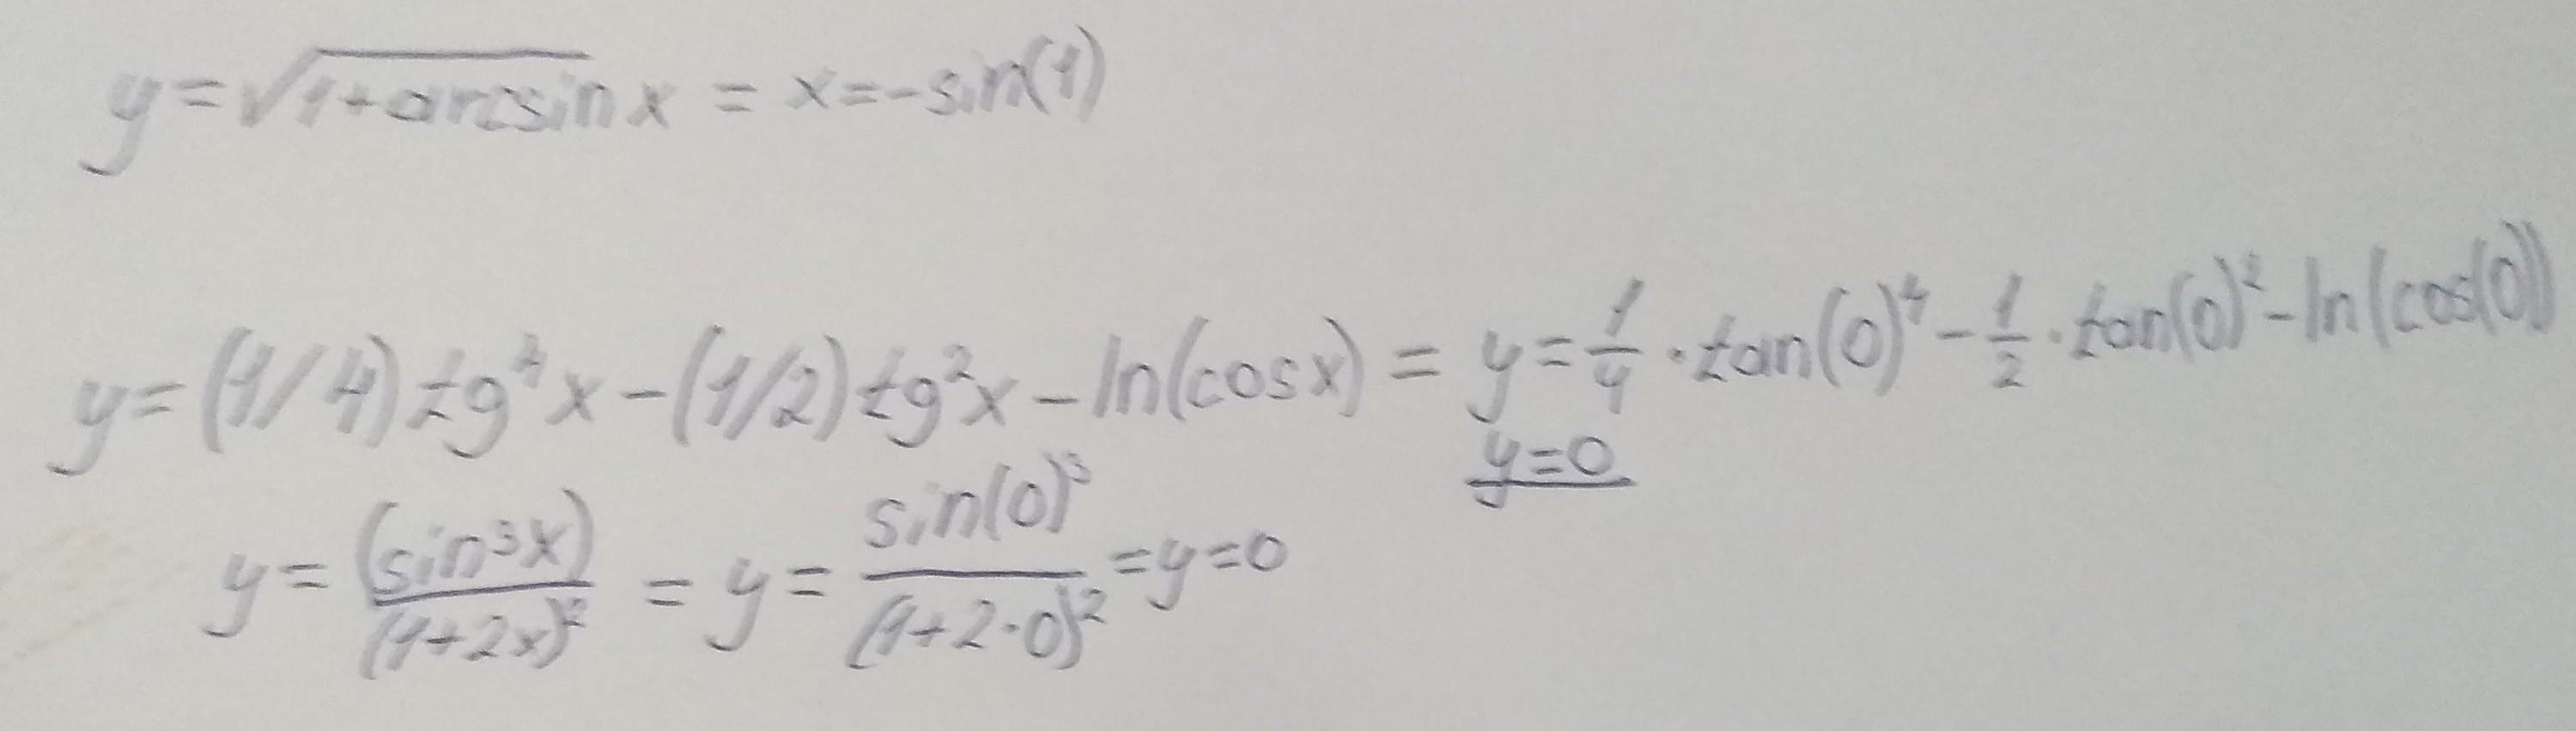 y=√1+arcsin x = x=-sin(1)
y=(1/4)tg⁴x-(1/2)tg²x-ln(cosx) = y=1/4·tan(0)⁴-1/2·tan(0)²-ln(cos(0))
y=0
y=(sin³x)/(1+2x)² = y=sin(0)³/(1+2·0)² =y=0